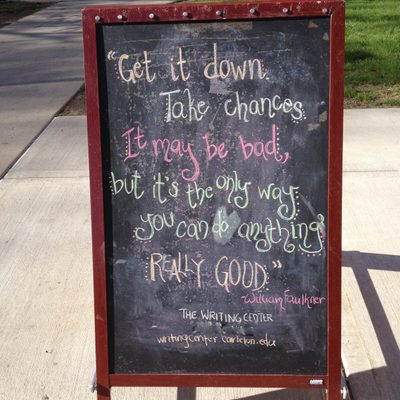 "Get it down.
Take chances.
It may be bad,
but it's the only way
you can do anything
REALLY GOOD"
William Faulkner
THE WRITING CENTER
writingcenter.carleton.edu